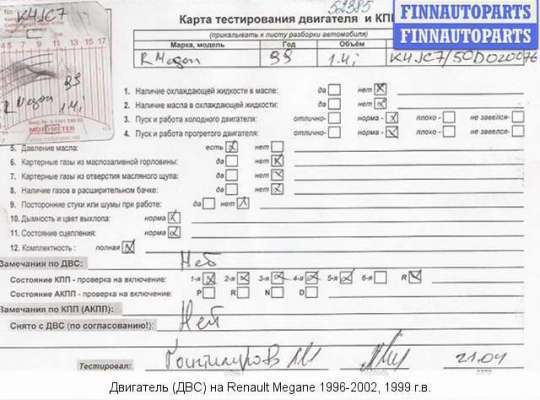 52385
FINNAUTOPARTS
FINNAUTOPARTS
FINNAUTOPARTS
K4JC7
99
R Megan
1.4i
MOTOMETER
Карта тестирования двигателя и КПП
(прикалывать к листу разборки автомобиля)
Марка, модель Год Объём
R Megan 99 1.4i K4JC7/50D020076
1. Наличие охлаждающей жидкости в масле: да нет
2. Наличие масла в охлаждающей жидкости: да нет
3. Пуск и работа холодного двигателя: отлично- норма - плохо - не завелся-
4. Пуск и работа прогретого двигателя: отлично- норма - плохо - не завелся-
5. Давление масла: есть нет
6. Картерные газы из маслозаливной горловины: да нет
7. Картерные газы из отверстия масляного щупа: да нет
8. Наличие газов в расширительном бачке: да нет
9. Посторонние стуки или шумы при работе: да нет
10. Дымность и цвет выхлопа: норма
11. Состояние сцепления: норма
12. Комплектность : полная
Замечания по ДВС: Нет
Состояние КПП - проверка на включение: 1-я 2-я 3-я 4-я 5-я 6-я R
Состояние АКПП - проверка на включение: P R N D
Замечания по КПП (АКПП): Нет
Снято с ДВС (по согласованию!):
Тестировал: 21.04
Двигатель (ДВС) на Renault Megane 1996-2002, 1999 г.в.